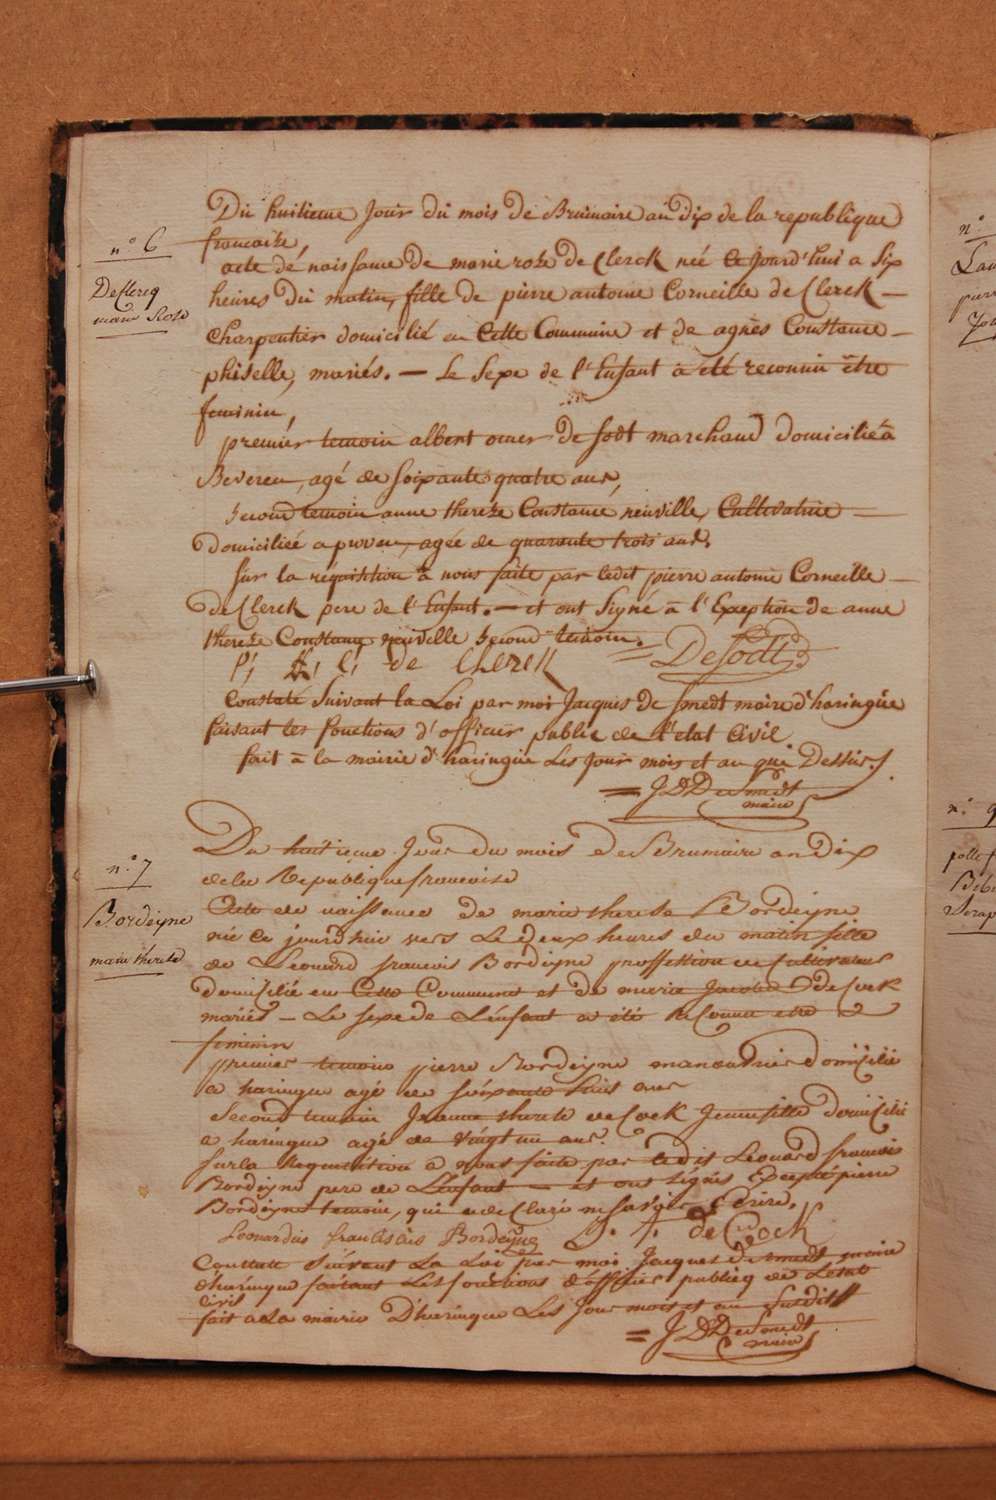 n.° 6
DeClercq
marie Rose
Du huitieme Jour du mois de Brumaire an dix de la republique
francaise,
acte de naissance de marie roze de Clerck née ce jourd'hui a six
heures du matin, fille de pierre antoine Corneille de Clerck —
Charpentier domicilié en Cette Commune et de agnès Constance —
phiselle, mariés. — Le Sexe de l'Enfant à été reconnu être
feminin,
premier temoin albert omer De Sodt marchand domicilié à
Beveren, agé de soixante quatre ans,
second temoin anne thereze Constance neuville, Cultivatrice —
domiciliée a proven, agée de quarante trois ans,
sur la requisition à nous faite par ledit pierre antoine Corneille —
de Clerck pere de l'Enfant. — et ont signé à l'Exeption de anne
thereze Constance neuville second temoin.
p; A; C; de Clerck = DeSodt
Constaté Suivant la Loi par moi Jacques De Smedt maire d'haringue
faisant les fonctions d'officier public de l'etat Civil
fait à la mairie d'haringue Les jour mois et an que Dessus.
= J D DeSmedt
maire
n.° 7
Bordeyne
marie therese
Du huitieme Jour du mois de Brumaire an Dix
de la Republique francoise
Acte de naissance de marie therese Bordeyne
née ce jourd'hui vers Le deux heures du matin fille
de Leonard francois Bordeyne proffession de Cultivateur
domicilié en Cette Commune et de marie Jacoba de Cock
mariés — Le sexe de L'enfant a été reconnu etre
feminin
premier temoin pierre Bordeyne manouvrier domicilié
a haringue agé de soixante huit ans
second temoin Jeanne therese de Cock Jeune fille domicilié
a haringue agé de vingt un ans.
sur la Requisition a nous faite par Ledit Leonard francois
Bordeyne pere de L'enfant — et ont signés Excepté pierre
Bordeyne temoin, qui a declaré ne savoir Ecrire.
Leonardus franciscus Bordeyne J. T. de Cock
Constaté suivant La Loi par moi Jacques de smedt maire
d'haringue faisant Les fonctions d'officier publicq de L'etat
civil
fait a La mairie D'haringue Les Jour mois et an susdit
= J D DeSmedt
maire
n.°
n.° 9